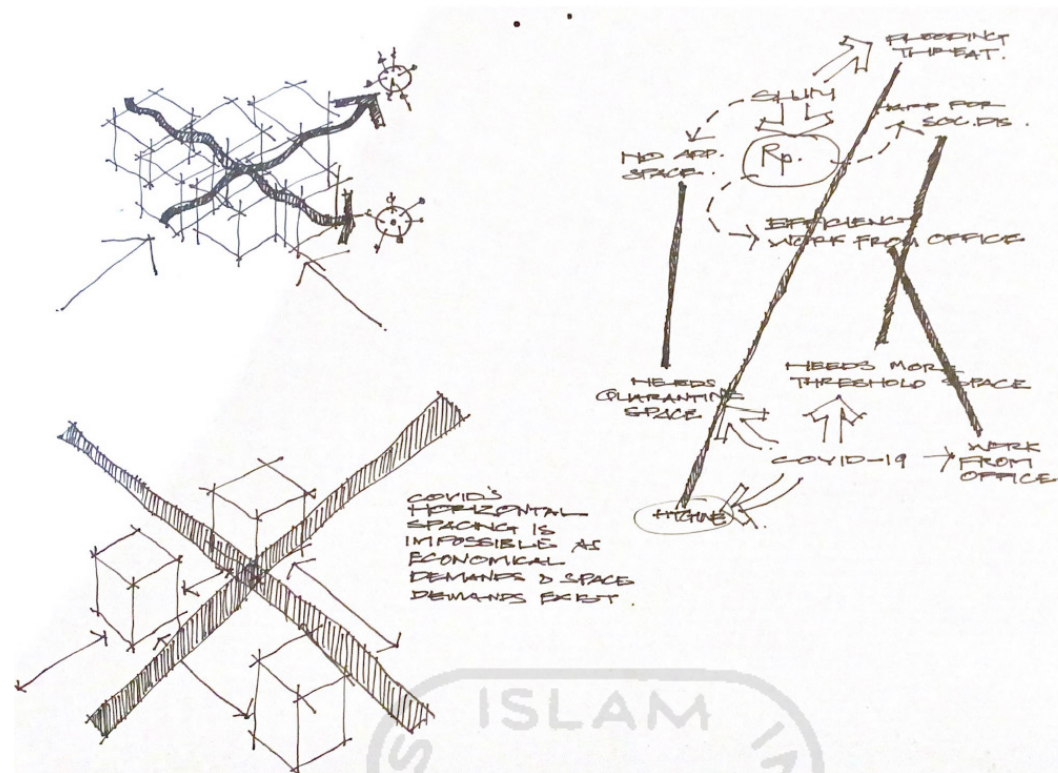 FLOODING
THREAT.
SLUM
HARD FOR
SOC.DIS.
NO APP.
SPACE.
Rp.
EFFICIENCY
WORK FROM OFFICE
NEEDS
QUARANTINE
SPACE
NEEDS MORE
THRESHOLD SPACE
COVID-19
WORK
FROM
OFFICE
COVID'S
HORIZONTAL
SPACING IS
IMPOSSIBLE AS
ECONOMICAL
DEMANDS & SPACE
DEMANDS EXIST
ISLAM